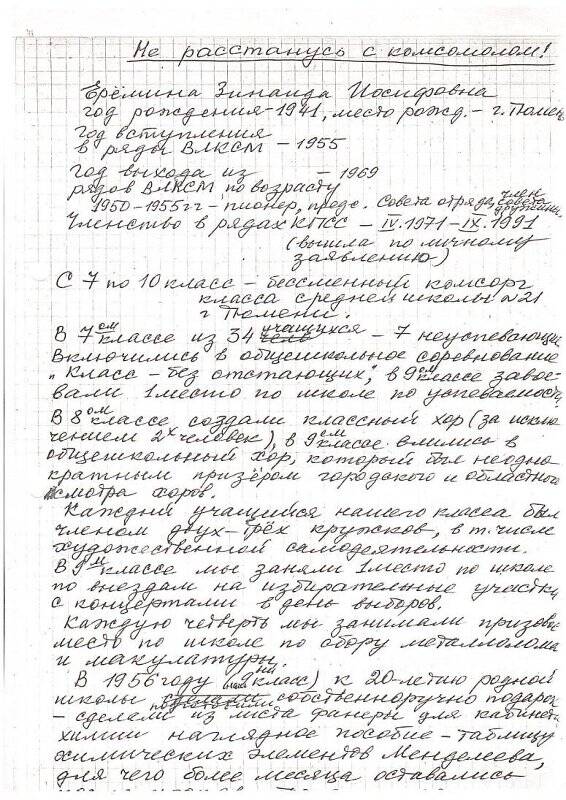 Не расстанусь с комсомолом!
Ерёмина Зинаида Иосифовна
год рождения-1941, место рожд. - г. Тюмень
Год вступления
в ряды ВЛКСМ - 1955
Год выхода из - 1969
рядов ВЛКСМ по возрасту
1950-1955гг - пионер, предс. Совета отряда, член совета дружины.
Членство в рядах КПСС - IV.1971 - IX.1991
(вышла по личному
заявлению)
С 7 по 10 класс - бессменный комсорг
класса средней школы №21
г Тюмени.
В 7ом классе из 34 учащихся - 7 неуспевающих
включились в общешкольное соревнование
"Класс - без отстающих", в 9ом классе завое-
вали 1 место по школе по успеваемости
В 8ом классе создали классный хор (за исклю-
чением 2х человек), в 9ом классе влились в
общешкольный хор, который был неодно-
кратным призёром городского и областного
смотра хоров.
Каждый учащийся нашего класса был
членом двух-трёх кружков, в т. числе
художественной самодеятельности.
В 9м классе мы заняли 1 место по школе
по выездам на избирательные участки
с концертами в день выборов.
Каждую четверть мы занимали призовые
место по школе по сбору металлолома
и макулатуры.
В 1956 году класс) к 20-летию родной
школы собственноручно подарок
- сделали из листа фанеры для кабинета
химии наглядное пособие - таблицу
химических элементов Менделеева,
для чего более месяца оставались